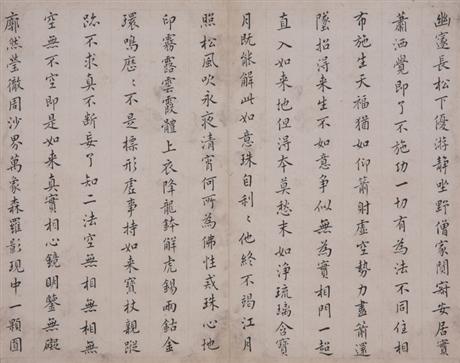 幽邃長松下優游靜坐野僧家闃寂安居實
蕭洒覺即了不施功一切有為法不同住相
布施生天福猶如仰箭射虛空勢力盡箭還
墜招得來生不如意爭似無為實相門一超
直入如来地但得本莫愁末如淨琉璃含寶
月既能解此如意珠自利々他終不竭江月
照松風吹永夜清宵何所為佛性戒珠心地
印霧露雲霞體上衣降龍鉢解虎錫兩鈷金
環鳴歷々不是標形虛事持如来寶杖親蹤
跡不求真不斷妄了知二法空無相無相無
空無不空即是如来真實相心鏡明鑒無礙
廓然瑩徹周沙界萬象森羅影現中一顆圓